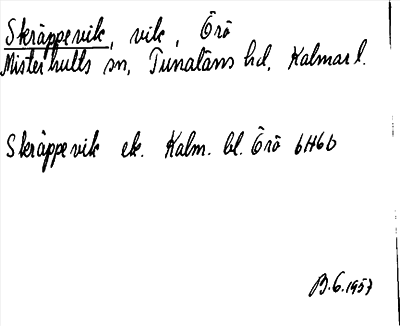 Skräppevik, vik, Örö
Misterhults sn, Tunaläns hd, Kalmar l.
Skräppevik ek. Kalm. bl. Örö 6H6b
B.G. 1957